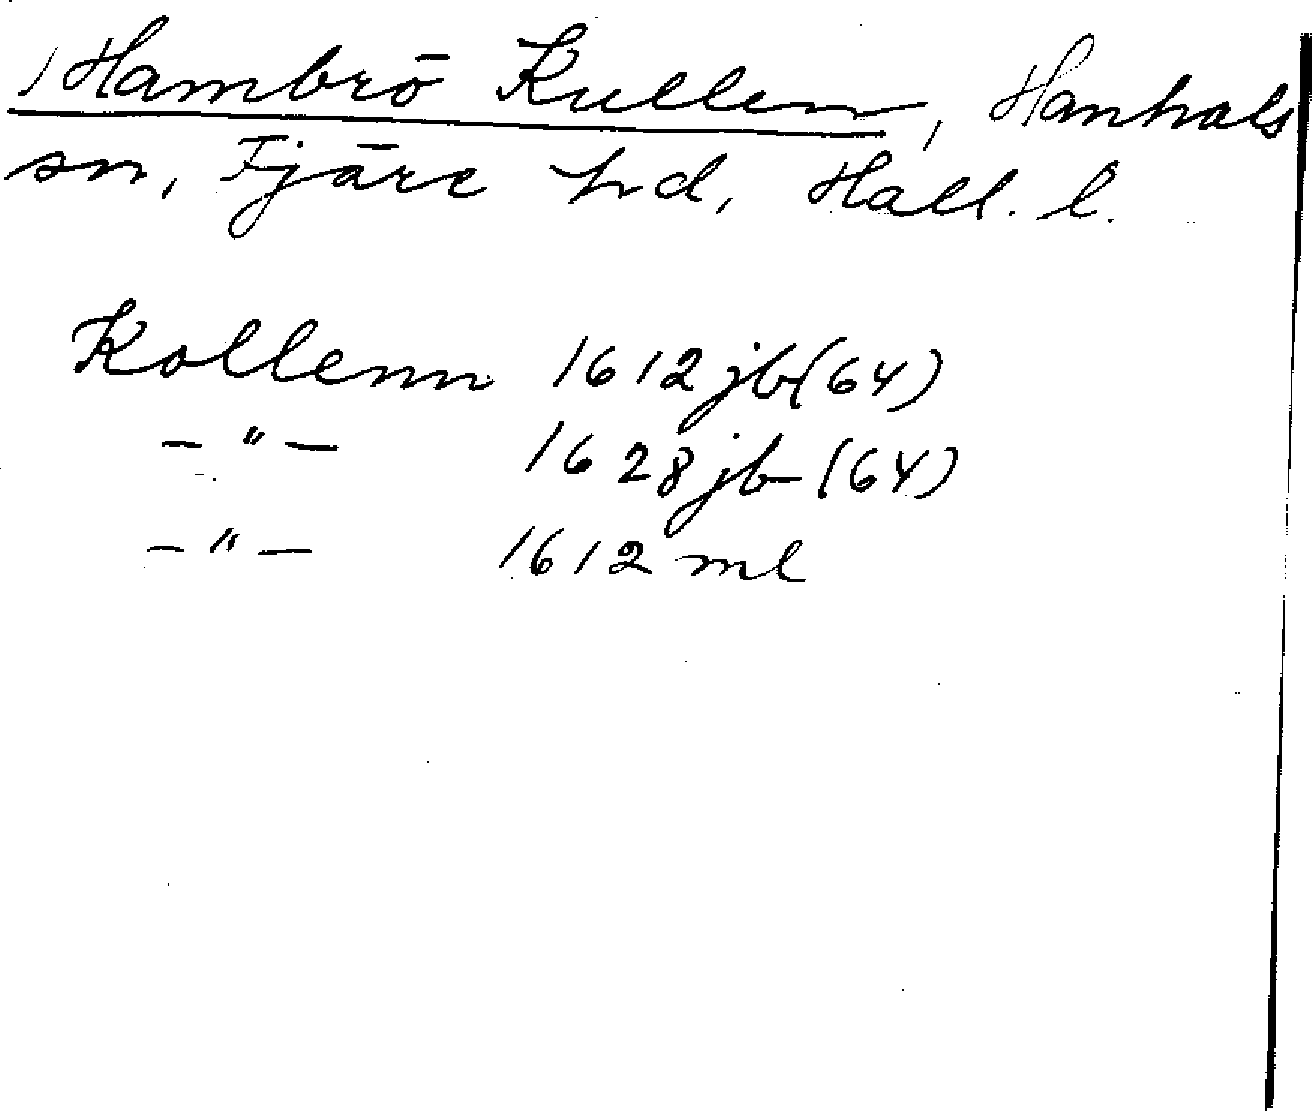 Hambrö Kullen, Hanhals
sn, Fjäre hd, Hall. l.
Kollenn 1612 jb (64)
-"- 1628 jb (64)
-"- 1612 ml